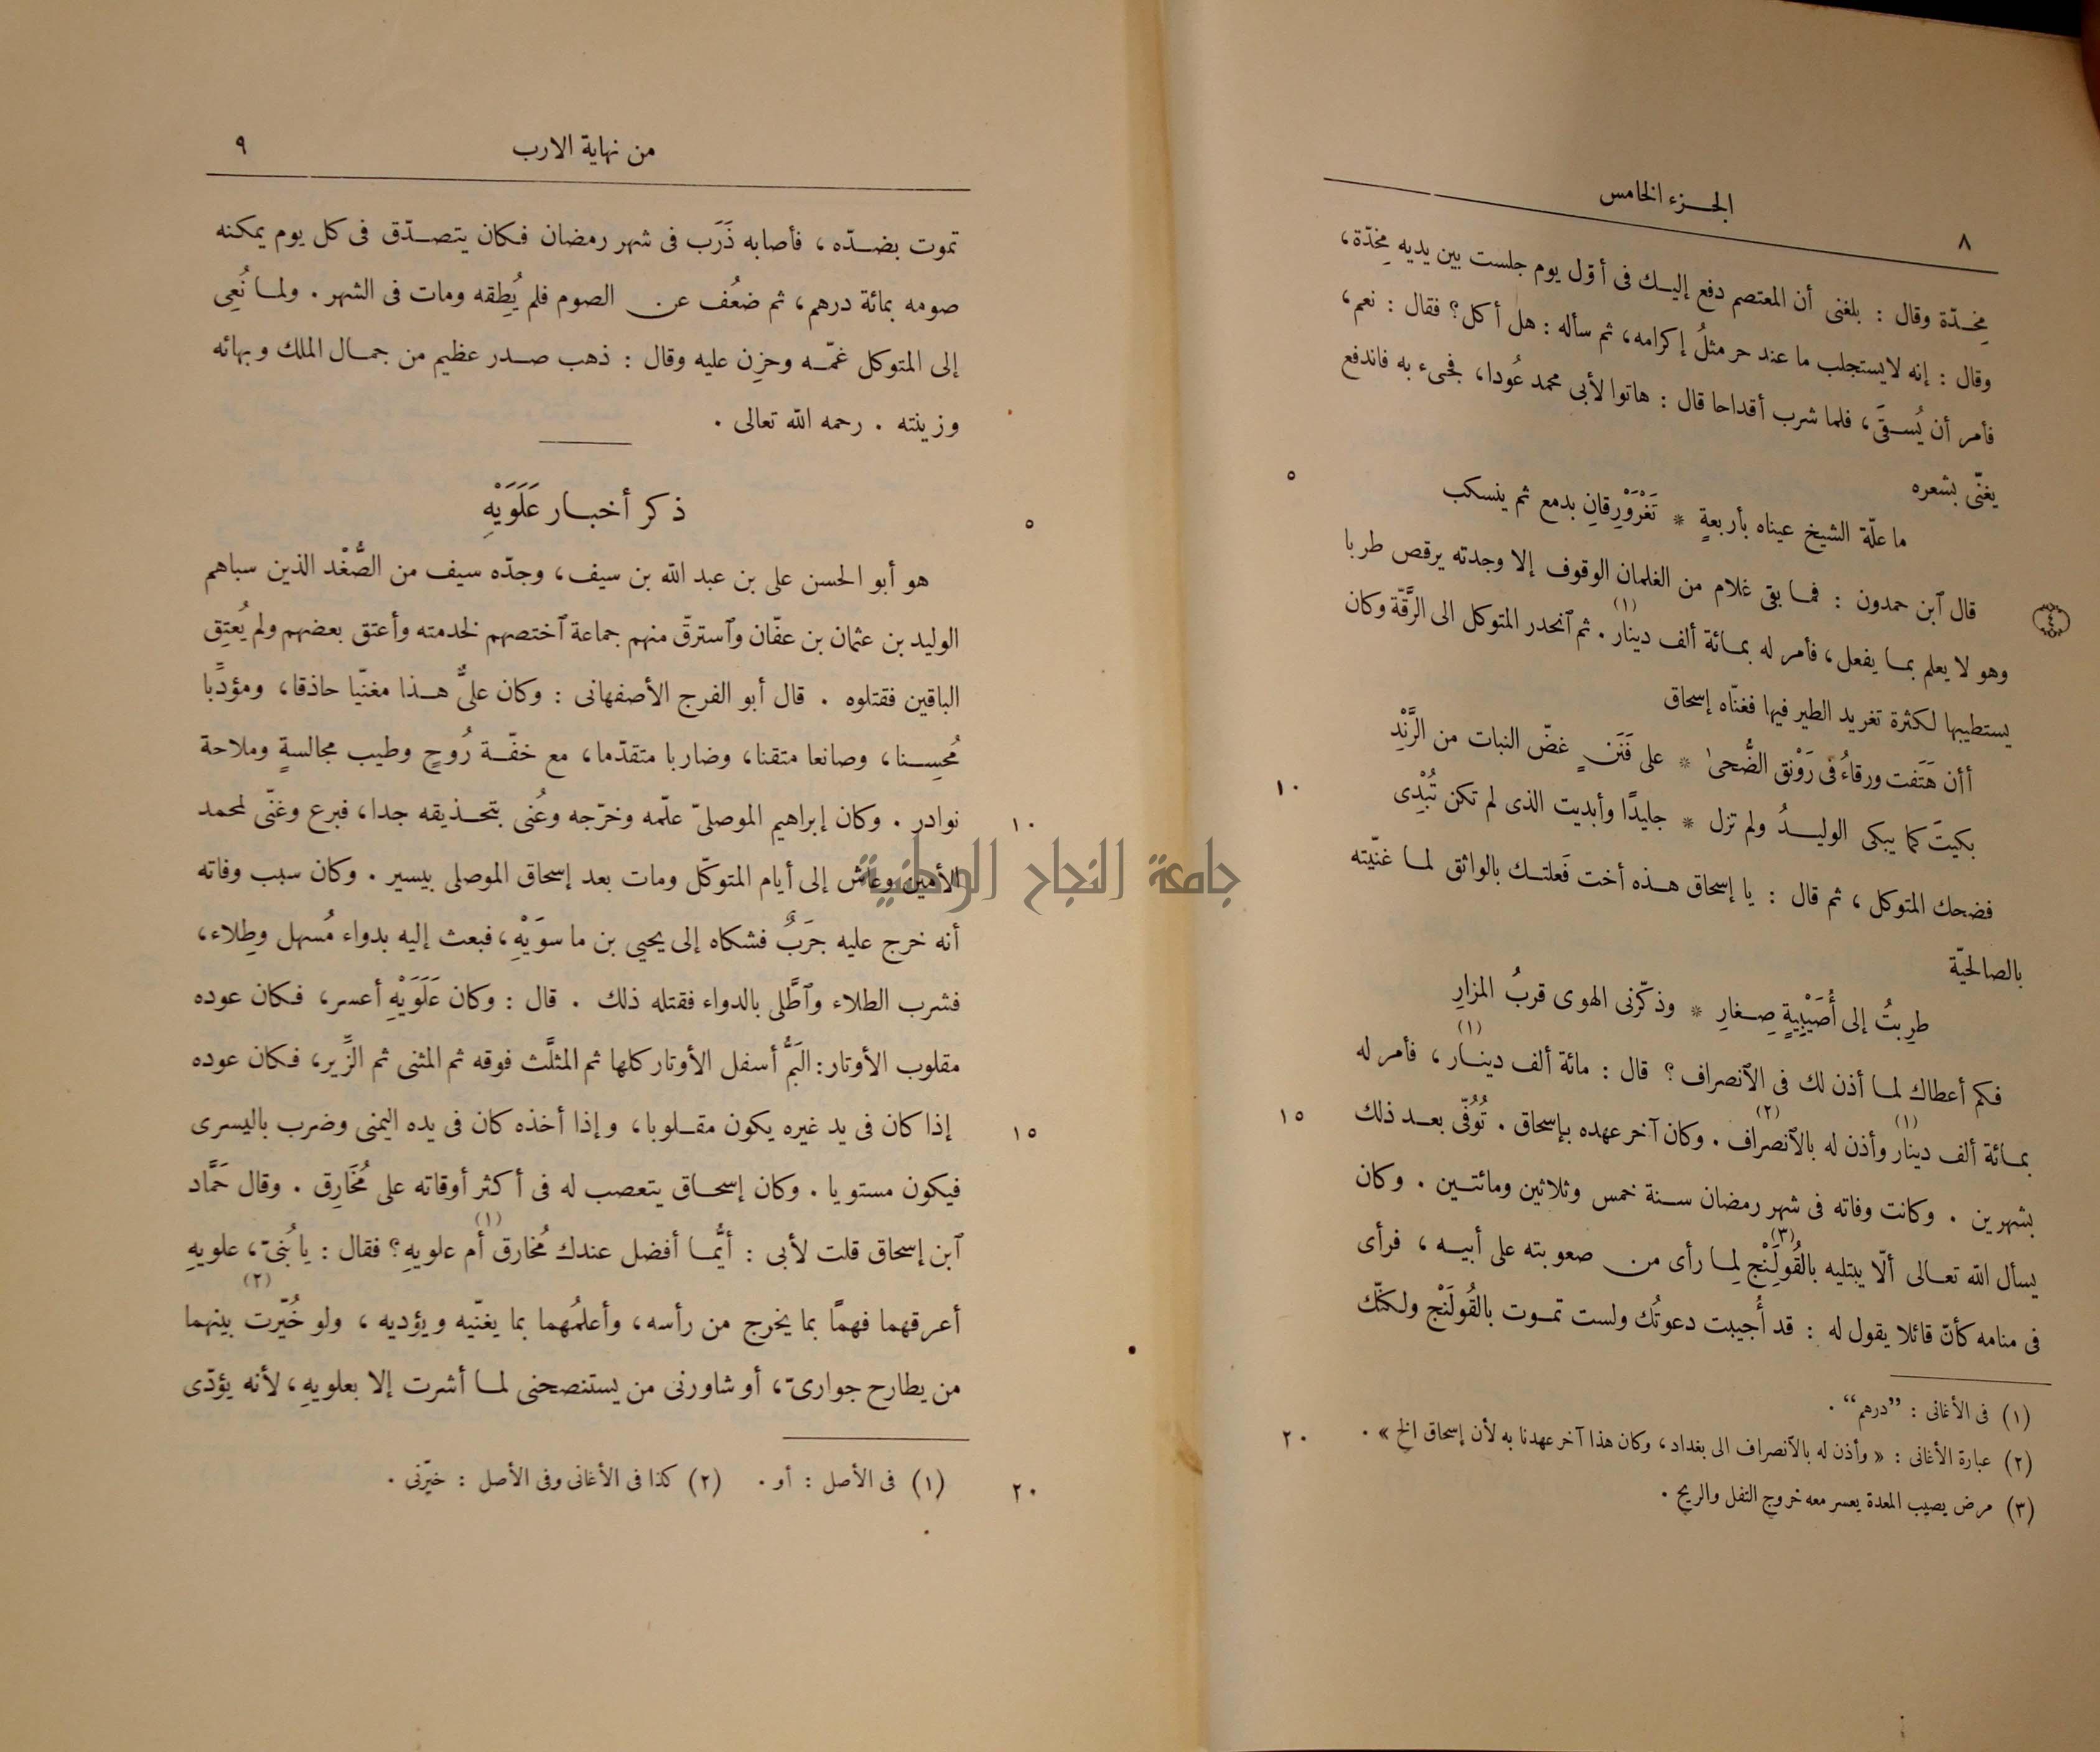 الجزء الخامس
٨
مِخدّة وقال : بلغنى أن المعتصم دفع إليك فى أوّل يوم جلست بين يديه مِخدّة،
وقال : إنه لايستجلب ما عند حر مثلُ إكرامه، ثم سأله : هل أكل؟ فقال : نعم،
فأمر أن يُسقَى، فلما شرب أقداحا قال : هاتوا لأبى محمد عُودا، فجىء به فاندفع
يغنّى بشعره
٥
ما علّة الشيخ عيناه بأربعةٍ * تَغْرَوْرِقانِ بدمع ثم ينسكب
قال ٱبن حمدون : فما بقى غلام من الغلمان الوقوف إلا وجدته يرقص طربا
وهو لا يعلم بما يفعل، فأمر له بمائة ألف دينار (١) . ثم ٱنحدر المتوكل الى الرَّقّة وكان
٤
يستطيبها لكثرة تغريد الطير فيها فغنّاه إسحاق
أأن هَتَفت ورقاءُ فى رَوْنق الضُّحىٰ * على فَنَنٍ غضّ النبات من الرَّنْدِ
١٠
بكيتَ كما يبكى الوليدُ ولم تزل * جليدًا وأبديت الذى لم تكن تُبْدِى
فضحك المتوكل، ثم قال : يا إسحاق هذه أخت فَعلتك بالواثق لما غنّيته
بالصالحيّة
طرِبتُ إلى أُصَيْبِيةٍ صِغارِ * وذكّرنى الهوى قربُ المزارِ
فكم أعطاك لما أذن لك فى الٱنصراف؟ قال : مائة ألف دينار (١) ، فأمر له
بمائة ألف دينار (١) وأذن له بالٱنصراف (٢) . وكان آخر عهده بإسحاق . تُوُفّى بعد ذلك
١٥
بشهرين . وكانت وفاته فى شهر رمضان سنة خمس وثلاثين ومائتين . وكان
يسأل الله تعالى ألّا يبتليه بالقُولِنْج (٣) لِما رأى من صعوبته على أبيه ، فرأى
فى منامه كأنّ قائلا يقول له : قد أُجيبت دعوتُك ولست تموت بالقُولَنْج ولكنّك
(١) فى الأغانى : ”درهم“ .
(٢) عبارة الأغانى : « وأذن له بالٱنصراف الى بغداد، وكان هذا آخر عهدنا به لأن إسحاق الخ » .
٢٠
(٣) مرض يصيب المعدة يعسر معه خروج الثفل والريح .
من نهاية الارب
٩
تموت بضدّه ، فأصابه ذَرَب فى شهر رمضان فكان يتصدّق فى كل يوم يمكنه
صومه بمائة درهم، ثم ضعُف عن الصوم فلم يُطِقه ومات فى الشهر . ولما نُعِى
إلى المتوكل غمّه وحزِن عليه وقال : ذهب صدر عظيم من جمال الملك وبهائه
وزينته . رحمه الله تعالى .
ذكر أخبار عَلَوَيْهِ
٥
هو أبو الحسن على بن عبد الله بن سيف، وجدّه سيف من الصُّغْد الذين سباهم
الوليد بن عثمان بن عفّان وٱسترقّ منهم جماعة ٱختصهم لخدمته وأعتق بعضهم ولم يُعتِق
الباقين فقتلوه . قال أبو الفرج الأصفهانى : وكان علىٌّ هذا مغنّيا حاذقا، ومؤدّبًا
مُحسِنا، وصانعا متقنا، وضاربا متقدّما، مع خفّة رُوحٍ وطيب مجالسةٍ وملاحة
نوادر . وكان إبراهيم الموصلىّ علّمه وخرّجه وعُنى بتحذيقه جدا، فبرع وغنّى لمحمد
١٠
الأمين وعاش إلى أيام المتوكّل ومات بعد إسحاق الموصلى بيسير . وكان سبب وفاته
جامعة النجاح الوطنية
أنه خرج عليه جرَبٌ فشكاه إلى يحيى بن ماسوَيْهِ، فبعث إليه بدواء مُسهل وطِلاء،
فشرب الطلاء وٱطَّلى بالدواء فقتله ذلك . قال : وكان عَلَوَيْهِ أعسر، فكان عوده
مقلوب الأوتار: البَمُّ أسفل الأوتار كلها ثم المثلَّث فوقه ثم المثنى ثم الزِّير، فكان عوده
إذا كان فى يد غيره يكون مقلوبا، وإذا أخذه كان فى يده اليمنى وضرب باليسرى
١٥
فيكون مستويا . وكان إسحاق يتعصب له فى أكثر أوقاته على مُخَارِق . وقال حَمَّاد
ٱبن إسحاق قلت لأبى : أيُّما أفضل عندك مُخارق أم (١) علويهِ؟ فقال : يا بُنىّ، علويهِ
أعرقهما فهمًا بما يخرج من رأسه، وأعلمُهما بما يغنّيه ويؤديه ، ولو خُيّرت (٢) بينهما
من يطارح جوارىّ، أو شاورنى من يستنصحنى لما أشرت إلا بعلويهِ، لأنه يؤدّى
(١) فى الأصل : أو . (٢) كذا فى الأغانى وفى الأصل : خيّرنى .
٢٠